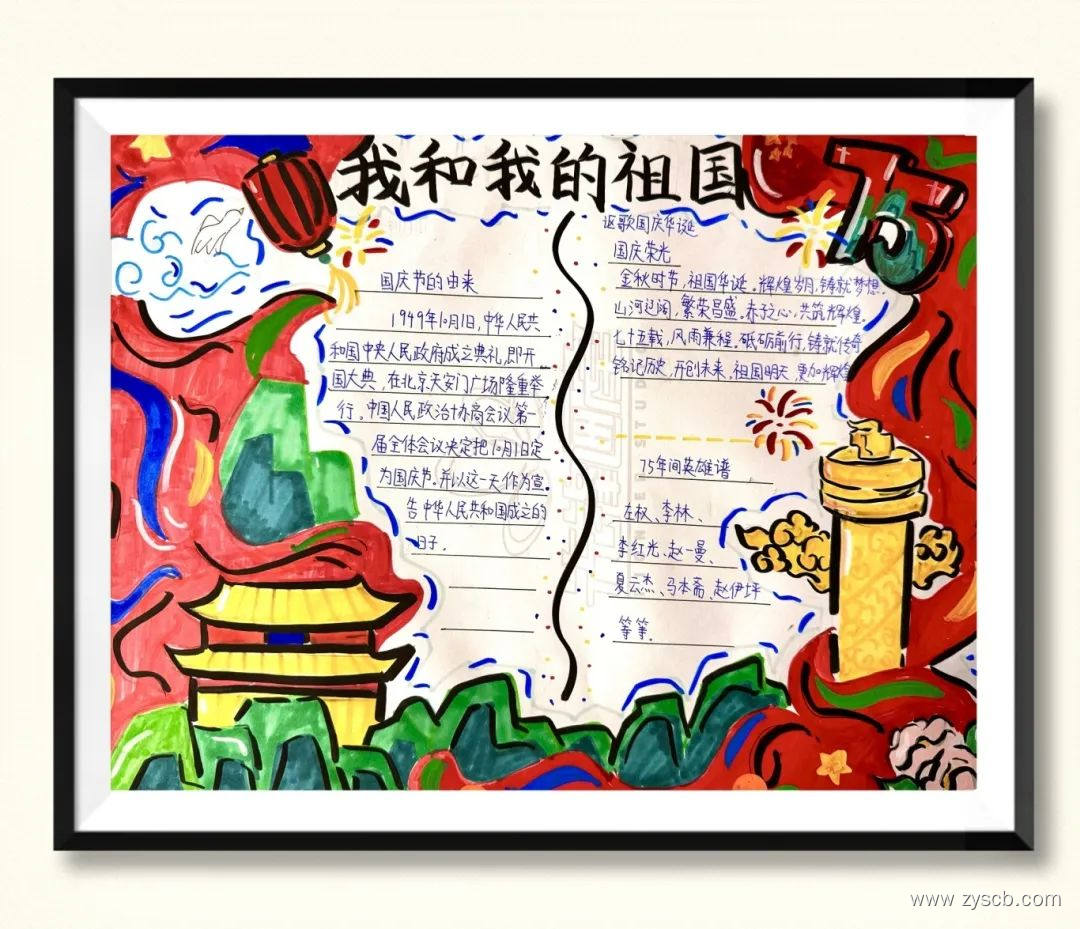 我和我的祖国
75
国庆节的由来
1949年10月1日,中华人民共
和国中央人民政府成立典礼,即开
国大典,在北京天安门广场隆重举
行。中国人民政治协商会议第一
届全体会议决定把10月1日定
为国庆节。并以这一天作为宣
告中华人民共和国成立的
日子。
讴歌国庆华诞
国庆荣光
金秋时节,祖国华诞。辉煌岁月,铸就梦想。
山河辽阔,繁荣昌盛。赤子之心,共筑辉煌。
七十五载,风雨兼程。砥砺前行,铸就传奇
铭记历史,开创未来。祖国明天,更加辉煌
75年间英雄谱
左权、李林、
李红光、赵一曼、
夏云杰、马本斋、赵伊坪
等等。
www.zyscb.com